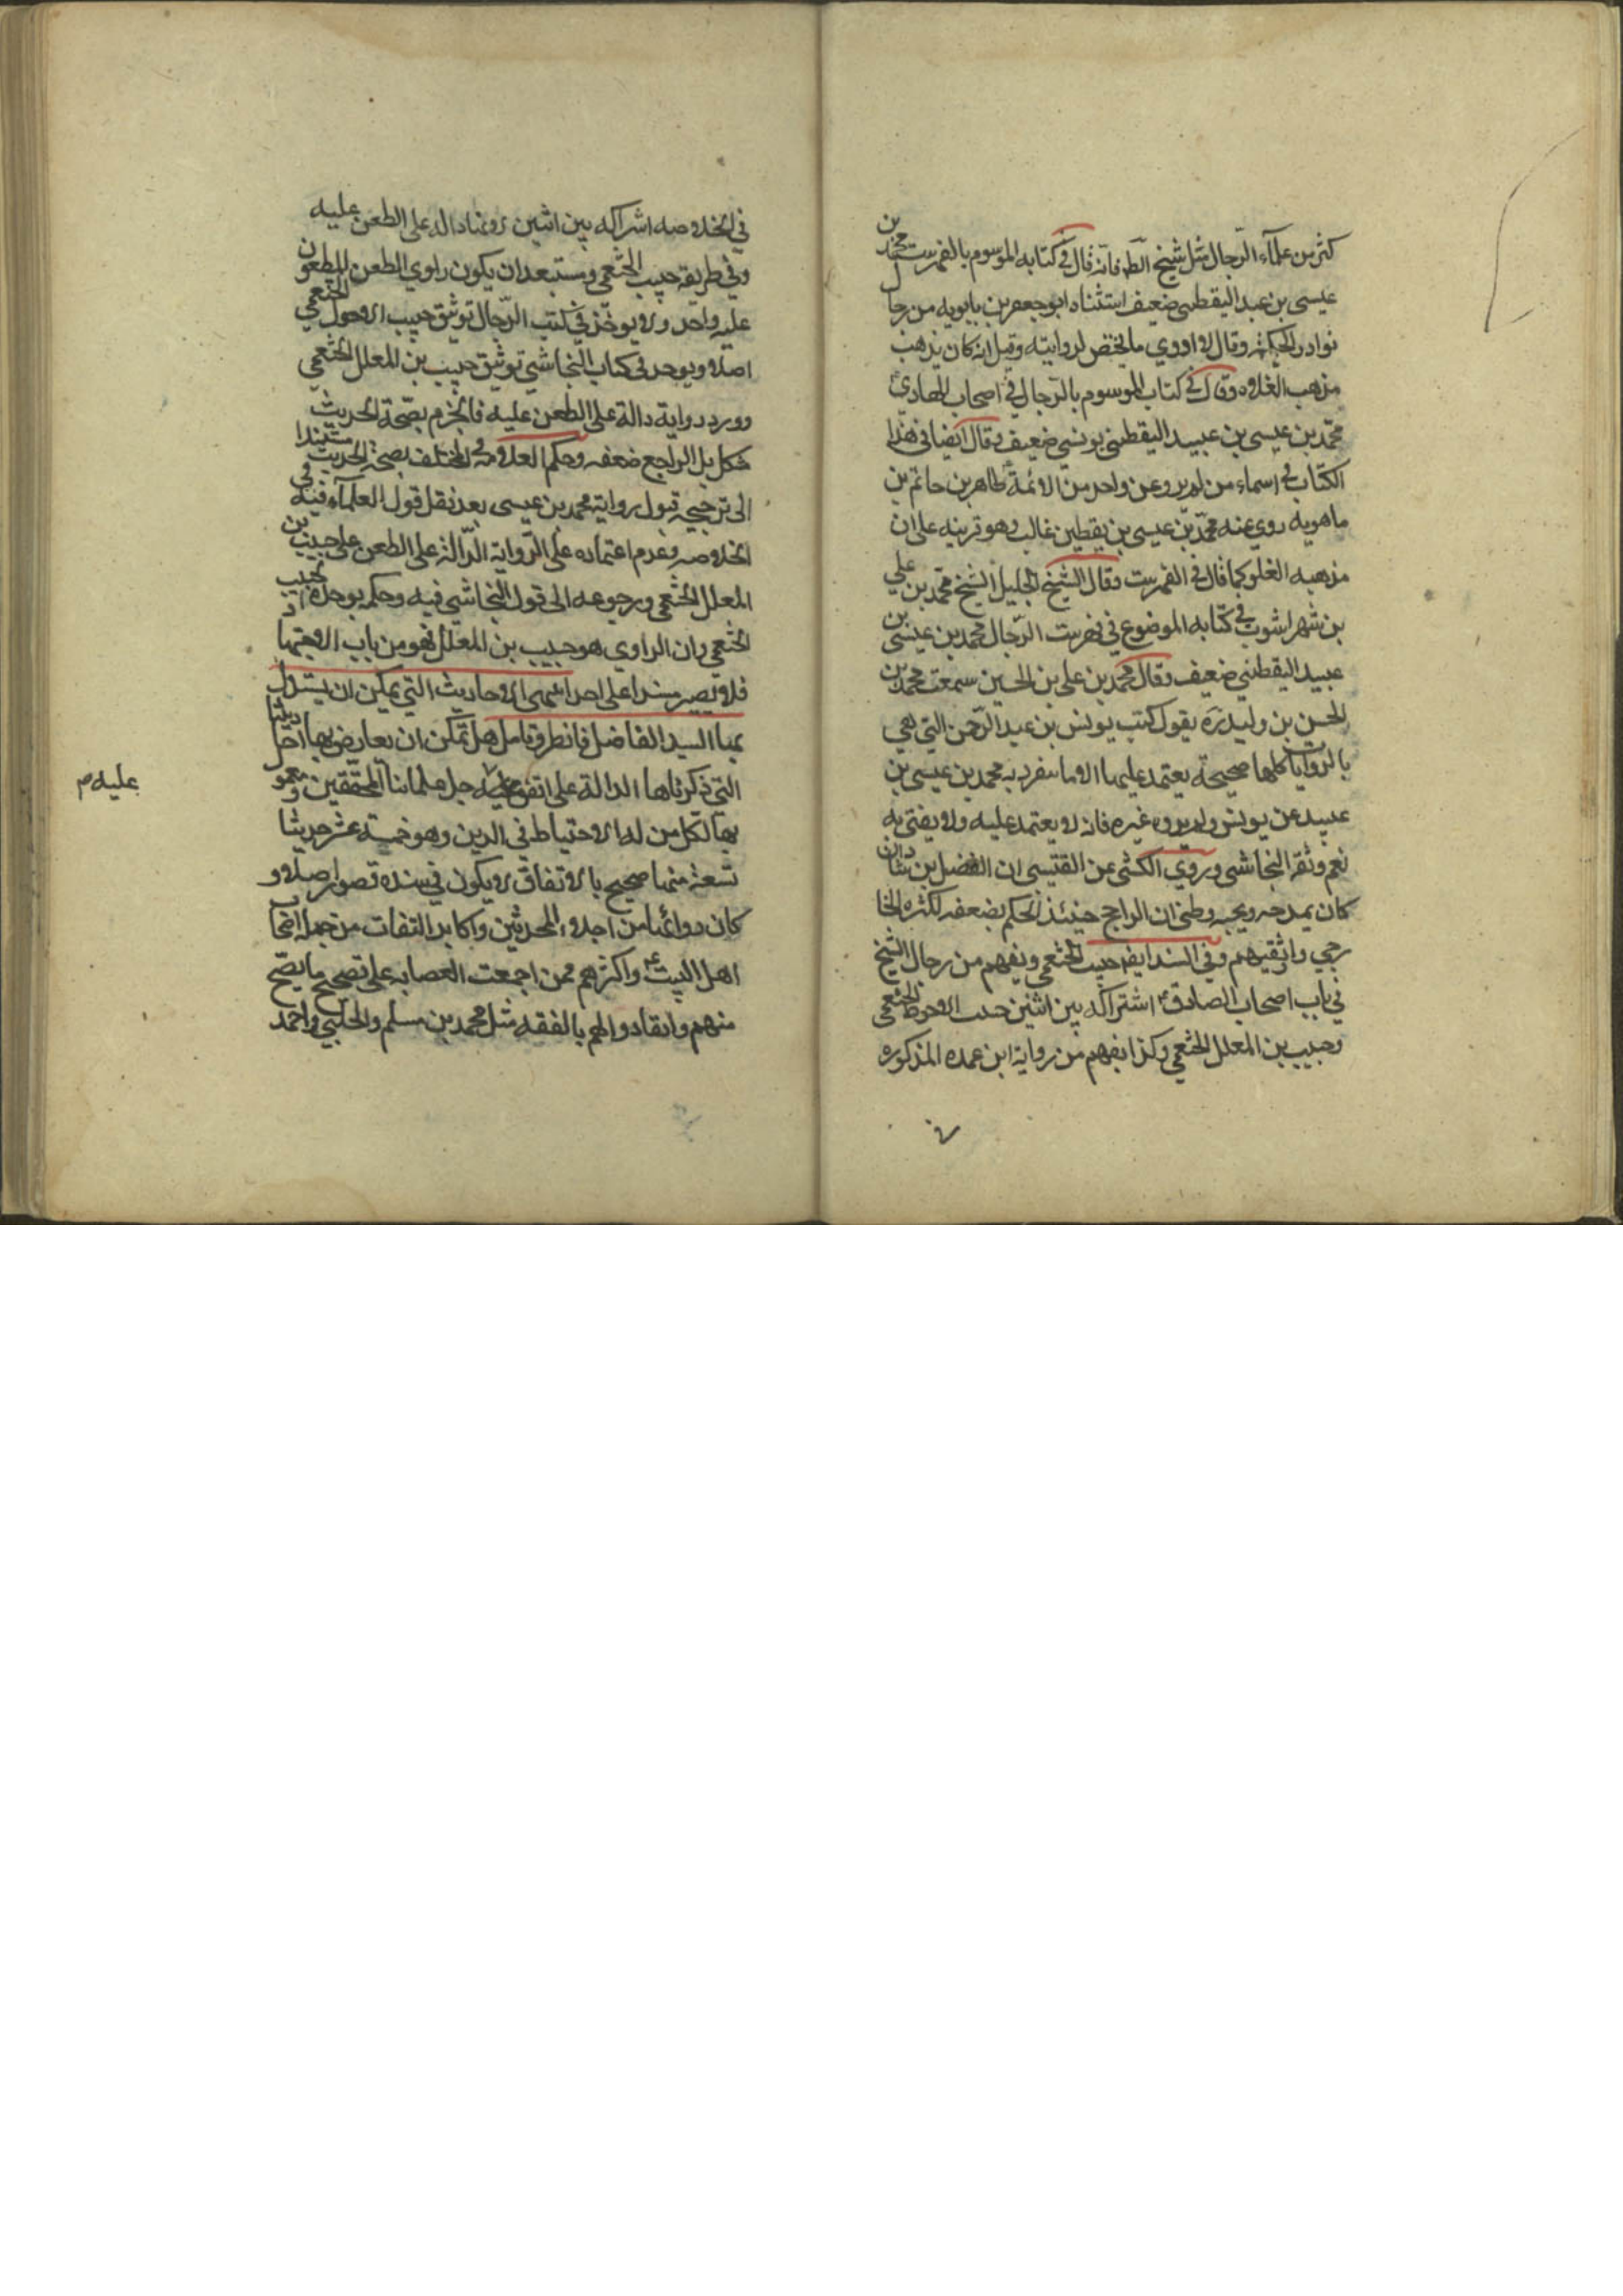 كثير من علماء الرجال مثل شيخ الطـ فانه قال في كتابه الموسوم بالفهرست محمد بن
عيسى بن عبيد اليقطيني ضعيف استثناه ابو جعفر بن بابويه من رجال
نوادر الحكمة وقال لا اروي ما يختص لروايته وقيل انه كان يذهب
مذهب الغلاة وقال في كتاب الموسوم بالرجال في اصحاب الهادي
محمد بن عيسى بن عبيد اليقطيني يونسي ضعيف وقال ايضا في هذا
الكتاب في اسماء من لم يرو عن واحد من الائمة طاهر بن حاتم بن
ماهويه روى عنه محمد بن عيسى بن يقطين غالب وهو قرينه على ان
مذهبه الغلو كما قال في الفهرست وقال الشيخ الجليل الشيخ محمد بن علي
بن شهر اشوب في كتابه الموضوع في فهرست الرجال محمد بن عيسى بن
عبيد اليقطيني ضعيف وقال محمد بن علي بن الحسين سمعت محمد بن
الحسن بن وليد ره يقول كتب يونس بن عبد الرحمن التي هي
بالروايات كلها صحيحة يعتمد عليها الا ما ينفرد به محمد بن عيسى بن
عبيد عن يونس ولم يروه غيره فانه لا يعتمد عليه ولا يفتى به
نعم وثقه النجاشي وروى الكشي عن القتيبي ان الفضل بن شاذان
كان يمدحه ويحبه وظني ان الراجح حينئذ الحكم بضعفه لكثرة الخا
رجي واثقيهم وفي السند ايضا حبيب الخثعمي ويفهم من رجال الشيخ
في باب اصحاب الصادق اشتراكه بين اثنين حبيب الاحول الخثعمي
وحبيب بن المعلل الخثعمي وكذا يفهم من رواية ابن عمده المذكوره
في الخلاصه اشراكه بين اثنين دالة على الطعن عليه
وفي طريقه حبيب الخثعمي ومستبعد ان يكون راوي الطعن المطعون
عليه واحد ولا يوخذ في كتب الرجال توثيق حبيب الاحول الخثعمي
اصلا ويوجد في كتاب النجاشي توثيق حبيب بن المعلل الخثعمي
وورد رواية دالة على الطعن عليه فالجزم بصحة الحديث
مشكل بل الراجع ضعفه وحكم العلامة في المختلف بصحة الحديث مستندا
الى ترجيحه قبول رواية محمد بن عيسى بعد نقل قول العلماء فيه في
الخلاصه وعدم اعتماده على الرواية الدالة على الطعن على حبيب بن
المعلل الخثعمي ورجوعه الى قول النجاشي فيه وحكم بوحدة حبيب
الخثعمي وان الراوي هو حبيب بن المعلل فهو من باب الاجتهاد
فلا يصير سندا على احد اعمى الاحاديث التي يمكن ان يستدل
بها السيد الفاضل فانظر وتامل هل تمكن ان يعارض بها احاديثنا
التي ذكرناها الدالة على اتفق عليه جل علمائنا المحققين ومعمو
بها لكل من له الاحتياط في الدين وهو خمسة عشر حديثا
تسعة منها صحيح بالاتفاق لا يكون في سنده قصور اصلا و
كان رواتها من اجلاء المحدثين واكابر الثقات من جملة اصحاب
اهل البيت واكثرهم ممن اجمعت العصابه على تصحيح ما يصح
منهم وانقادوا لهم بالفقه مثل محمد بن مسلم والحلبي واحمد
عليه م